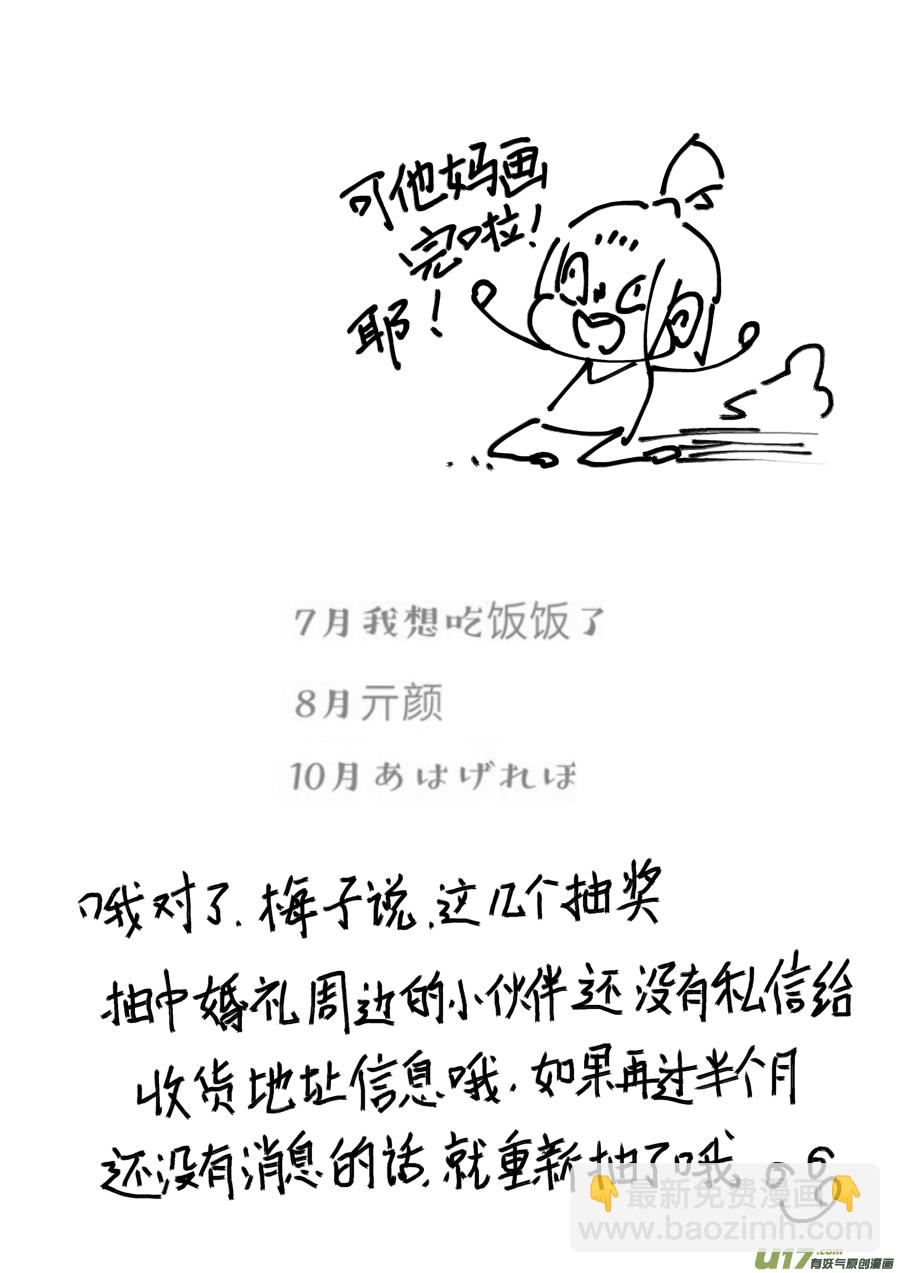 可他妈画
完啦！
耶！
7月我想吃饭饭了
8月亓颜
10月あはげれぼ
哦对了.梅子说.这几个抽奖
抽中婚礼周边的小伙伴还没有私信给
收货地址信息哦.如果再过半个月
还没有消息的话.就重新抽了哦
👇最新免费漫画👇
www.baozimh.com
U17.com
有妖气原创漫画